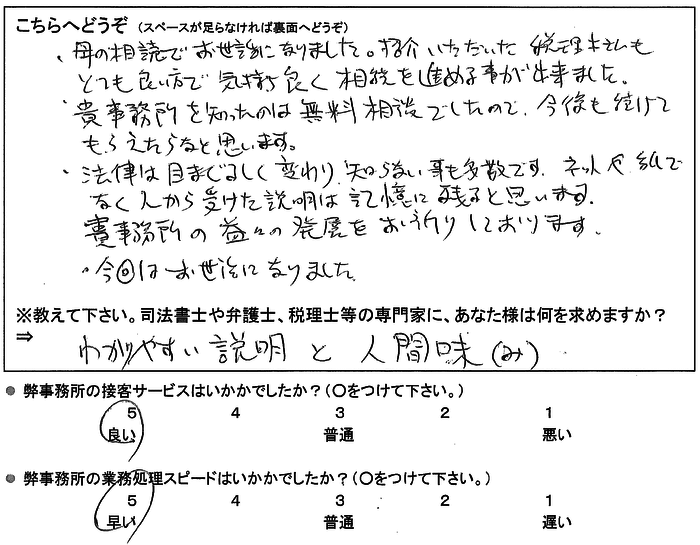 こちらへどうぞ（スペースが足らなければ裏面へどうぞ）
・母の相続でお世話になりました。紹介いただいた税理士さんも
とても良い方で気持ち良く相続を進める事が出来ました。
・貴事務所を知ったのは無料相談でしたので、今後も続けて
もらえたらなと思います。
・法律は目まぐるしく変わり知らない事も多数です。ネットや紙で
なく人から受けた説明は記憶に残ると思います。
貴事務所の益々の発展をお祈りしております。
・今回はお世話になりました
※教えて下さい。司法書士や弁護士、税理士等の専門家に、あなた様は何を求めますか？
⇒ わかりやすい説明と人間味（み）
● 弊事務所の接客サービスはいかかでしたか？（〇をつけて下さい。）
5 4 3 2 1
良い 普通 悪い
● 弊事務所の業務処理スピードはいかかでしたか？（〇をつけて下さい。）
5 4 3 2 1
早い 普通 遅い